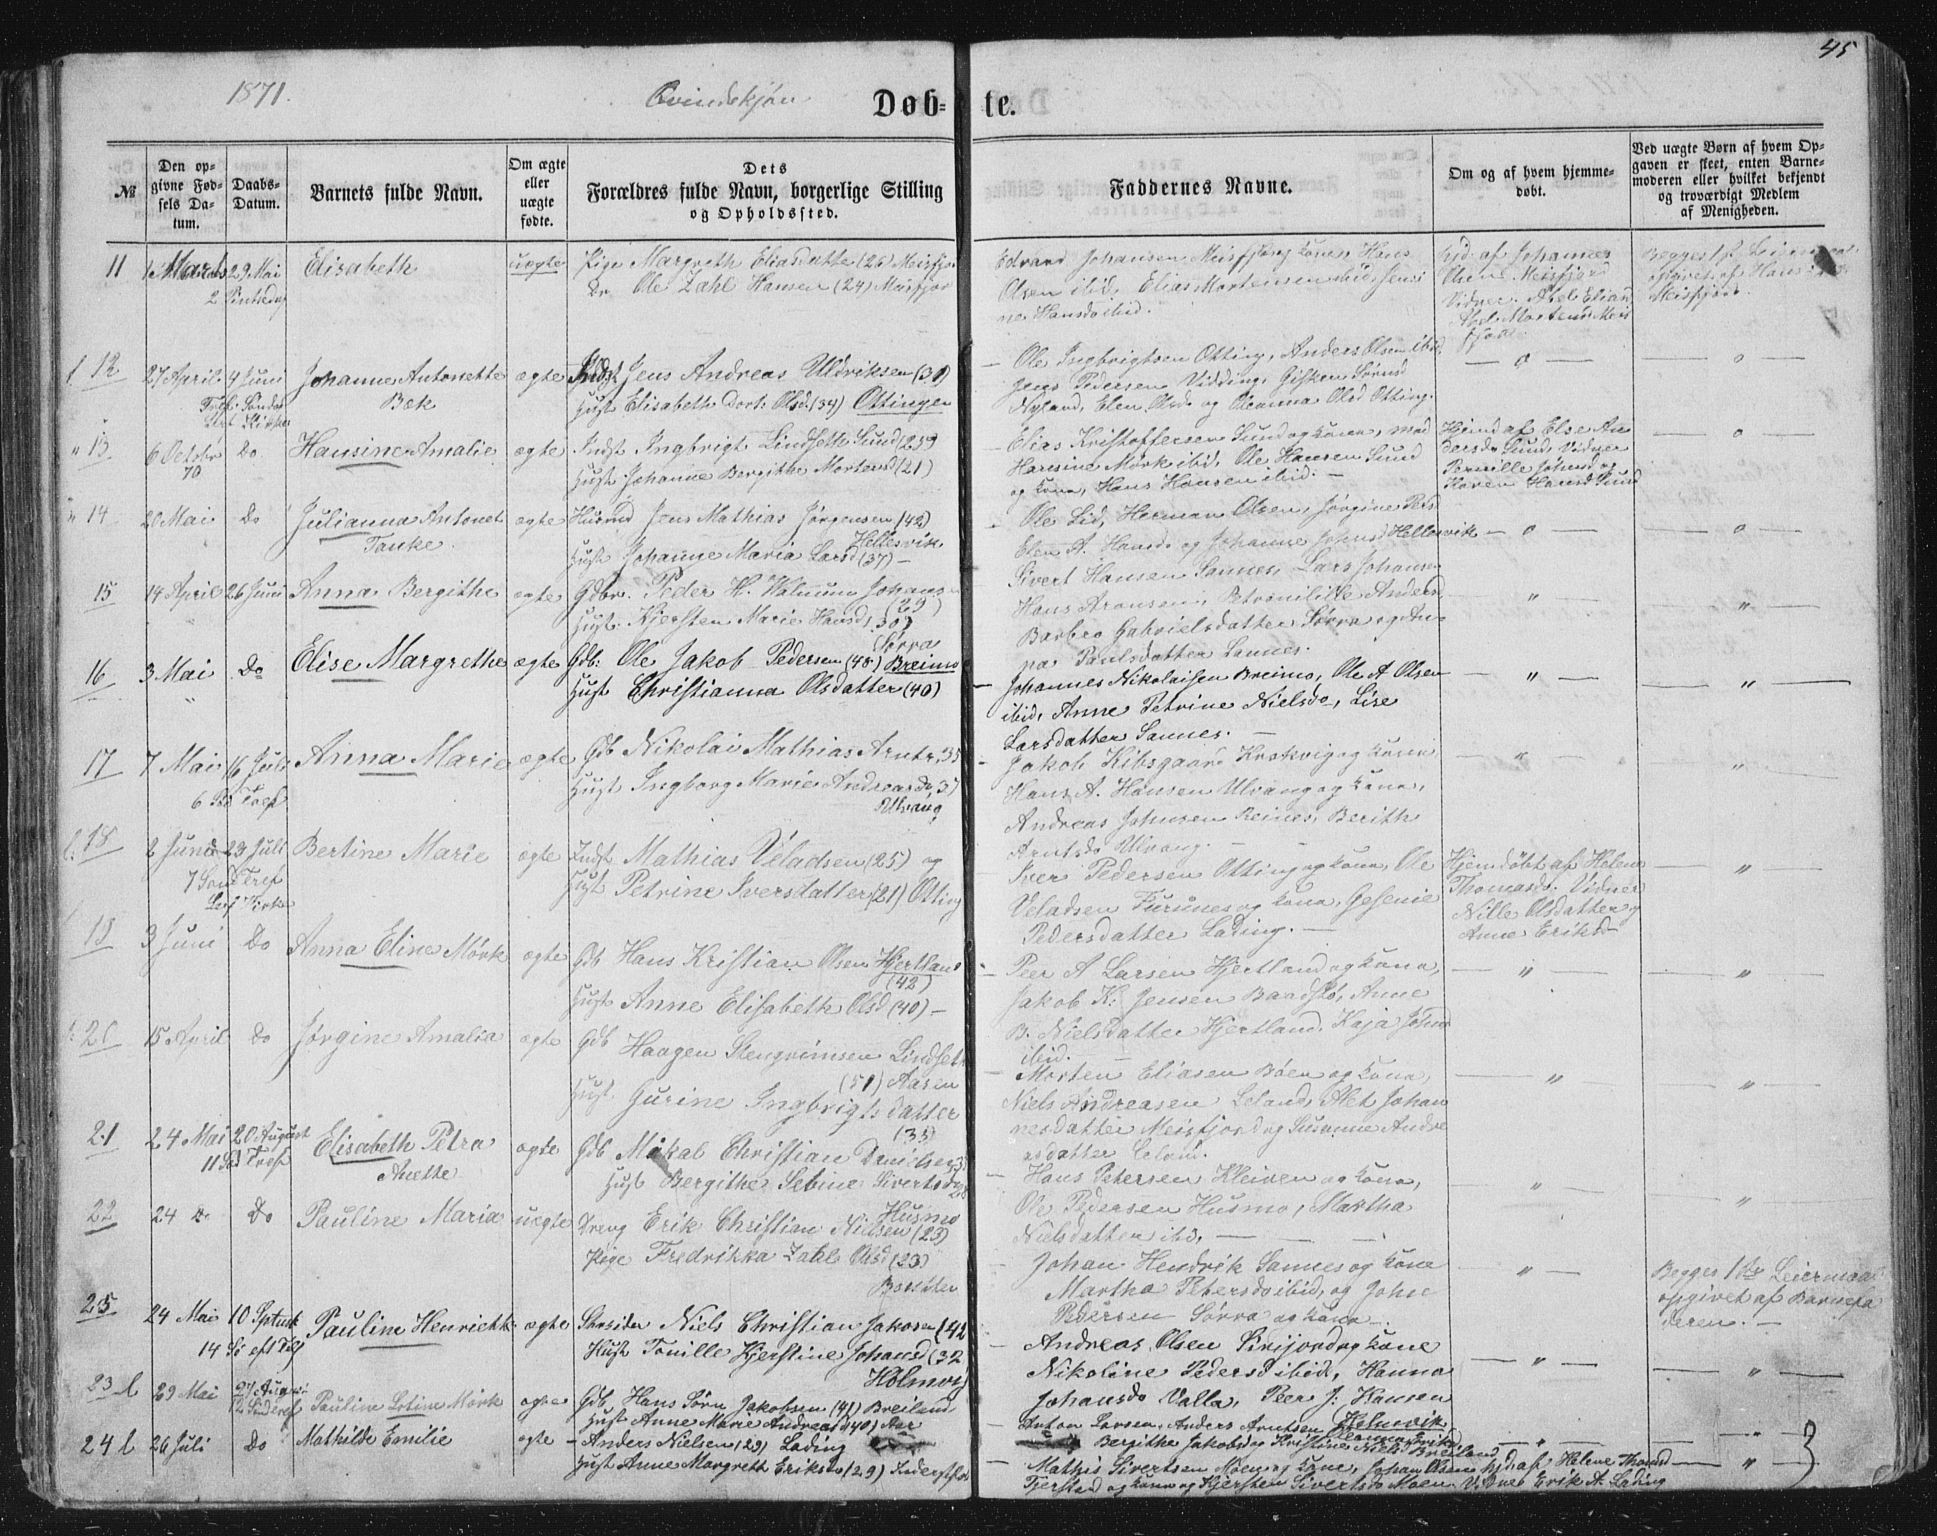 45
1871.
Qvindekjøn
Døb-
te.
№
Den op-
givne Fød-
sels Da-
tum.
Daabs-
Datum.
Barnets fulde Navn.
Om ægte
eller
uægte
fødte.
Dets
Forældres fulde Navn, borgerlige Stilling
og Opholdssted.
Faddernes Navne.
Om og af hvem hjemme-
døbt.
Ved uægte Børn af hvem Op-
gaven er skeet, enten Barne-
moderen eller hvilket bekjendt
og troværdigt Medlem
af Menigheden.
11 Marts 29 Mai Elisabeth uægte Pige Margreth Eliasdatter (26) Meisfjor
2 Pintsedag Ole Zahl Hansen (24) Meisfjor
Edvard Johansen Meisfjord og kone, Hans
Olsen ibid, Elias Mortensen ibid, Jensi
ne Hansd ibid.
Hjd. af Johannes
Olsen Meisfjord
Vidner. Abel Elias
Abel Mortensd Meis
fjord
Begges 1ste Leiermaal
Meisfjord
12 27 April 4 Juni Johanne Antonette ægte Indst Jens Andreas Uldriksen (31)
Bæk
Hust Elisabeth Dort. Olsd. (34) Ottingen
Ole Ingbrigtsen Otting, Anders Olsen ibid,
Jens Pedersen Vidding, Gisken Sørensd
Nyland, Elen Olsd og Oleanna Olsd Otting.
— o — — o —
" 13 6 Octobr Do Hansine Amalie ægte Indst Ingbrigt Lindseth Sund (25)
70 Hust Johanne Bergithe Mortensd (21)
Elias Kristoffersen Sund og kone, mad
Hansine Mørk ibid, Ole Hansen Sund
og kone, Hans Hansen ibid. —
Hjemd af Else An
dersd Sund, Vidner
Pernille Johnsd og
Karen Hansd Sund
— o —
" 14 20 Mai Do Julianna Antonet ægte Husmd Jens Mathias Jørgensen (42)
Tanke Hellesvik
Hust Johanne Maria Larsd (37) —
Ole Lid, Herman Olsen, Jørgine Pets
Elen A. Hansd og Johanne Johnsd Hellesvik
— o — — o —
15 14 April 26 Juni Anna Bergithe ægte Gdbr. Peder H. Walnum Johans
(29)
Hust. Kjersten Marie Hansd, 30
Sørra
Sivert Hansen Sannes, Lars Johansen
Hans Aronsen, Petronille Anders
Barbro Gabrielsdatter Sørra og An-
na Paulsdatter Sannes.
— " — — " —
16 3 Mai Do Elise Margrethe ægte Gdb: Ole Jakob Pedersen (45) Breimo
Hust Christianna Olsdatter (40)
Johannes Nikolaisen Breimo, Ole A Olsen
ibid, Anne Petrine Nielsd, Lise
Larsdatter Sannes. —
— " — — " —
17 7 Mai 16 Juli Anna Marie ægte Gdb Nikolai Mathias Arntz, 35
6 Sd Tref Hust Ingborg Marie Andreasd, 37
Ulvang
Jakob Kibsgaard Krokvig og kone
Hans A. Hansen Ulvang og kone,
Andreas Johnsen Reines, Berith
Arntsd Ulvang. —
" "
18 2 Juni 23 Juli Bertine Marie ægte Indst Mathias Veladsen (25) og
7 Sønd Tref Hust Petrine Iversdatter (21) Otting
Iver Pedersen Otting og kone, Ole
Veladsen Furunes og kone, Gesenie
Pedersdatter Lading. —
Hjemdøbt af Helene
Thomasd. Vidner
Nille Olsdatter og
Anne Eriksd
— " —
18 3 Juni Do Anna Eline Mørk ægte Gdb Hans Kristian Olsen Hjertland
(42)
Hust Anne Elisabeth Olsd (40) —
Peer A Larsen Hjertland og kone,
Jakob K. Jensen Baadstø, Anne
B. Nielsdatter Hjertland, Kaja Johnd
ibid. —
— " — — " —
20 15 April Do Jørgine Amalia ægte Gdb Haagen Stengrimsen Lindseth
(51) Aasen
Hust Gurine Ingbrigtsdatter
(35)
Morten Eliasen Bøen og kone,
Niels Andreasen Leland, Alet Johan
nesdatter Meisfjord og Susanne Andre
asdatter Leland.
— " — "
21 24 Mai 20 August Elisabeth Petra ægte Gdb Mikal Christian Danielsen
11 Sd Tref Anette Hust Bergithe Sebine Sivertsd
Husmo
Hans Petersen Kleiven og kone,
Ole Pedersen Husmo, Martha
Nielsdatter ibid, —
— " — "
22 24 Do Do Pauline Maria uægte Dreng Erik Christian Nielsen (23)
Pige Fredrikka Zahl Olsd (23)
Johan Hendrik Sannes og kone
Martha Petersd ibid, og John
Pedersen Sørra og kone —
— " —
Begges 1ste Leiermaal
opgivet af Barnefa
deren. —
25 24 Mai 10 Sptmb Pauline Henriette ægte Strsider Niels Christian Jakobsen (42
14 Sø eft Tref Hust Tonille Kjerstine Johansd (32
Holmvig
Andreas Olsen Sinjord og kone
Nikoline Pedersd ibid, Hanna
Johansd Valla, Peer J. Hansen
Holmvik
— " — — " —
23 29 Mai 27 Aug Pauline Lotine Mørk ægte Gdb. Hans Sørn Jakobsen (41) Breiland
Hust Anne Marie Andreasd (40) Aar
Anton Larsen, Anders Arntsen
Bergithe Jakobsd og Kristine Niels Breiland
— " —
24 26 Juli Do Mathilde Emilie ægte — Anders Nielsen (29) Lading
Hust Anne Margreth Eriksd (29)
Mathis Sivertsen Moen og kone, Johan Olsen
Fjerstad og kone og Kjersten Sivertsd Moen.
Hjd af Helene Thomsd
Vidner Erik A. Lading
— " —
3